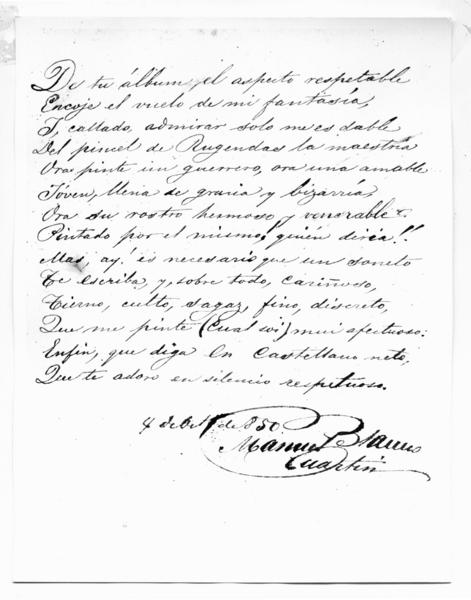 De tu álbum, el aspecto respetable
Encoje el vuelo de mi fantasía,
I, callado, admirar solo me es dable
Del pincel de Rugendas la maestría
Ora pinte un guerrero, ora una amable
Jóven, llena de gracia y bizarría,
Ora su rostro hermoso y venerable &.
Pintado por el mismo! quién diría!!
Mas, ay! és necesario que un soneto
Te escriba, y, sobre todo, cariñoso,
Tierno, culto, sagaz, fino, discreto,
Que me pinte (cual soi) mui afectuoso:
Enfin, que diga en castellano neto,
Que te adoro en silencio respetuoso.
4 de de 850
Manuel Blanco
Cuartin